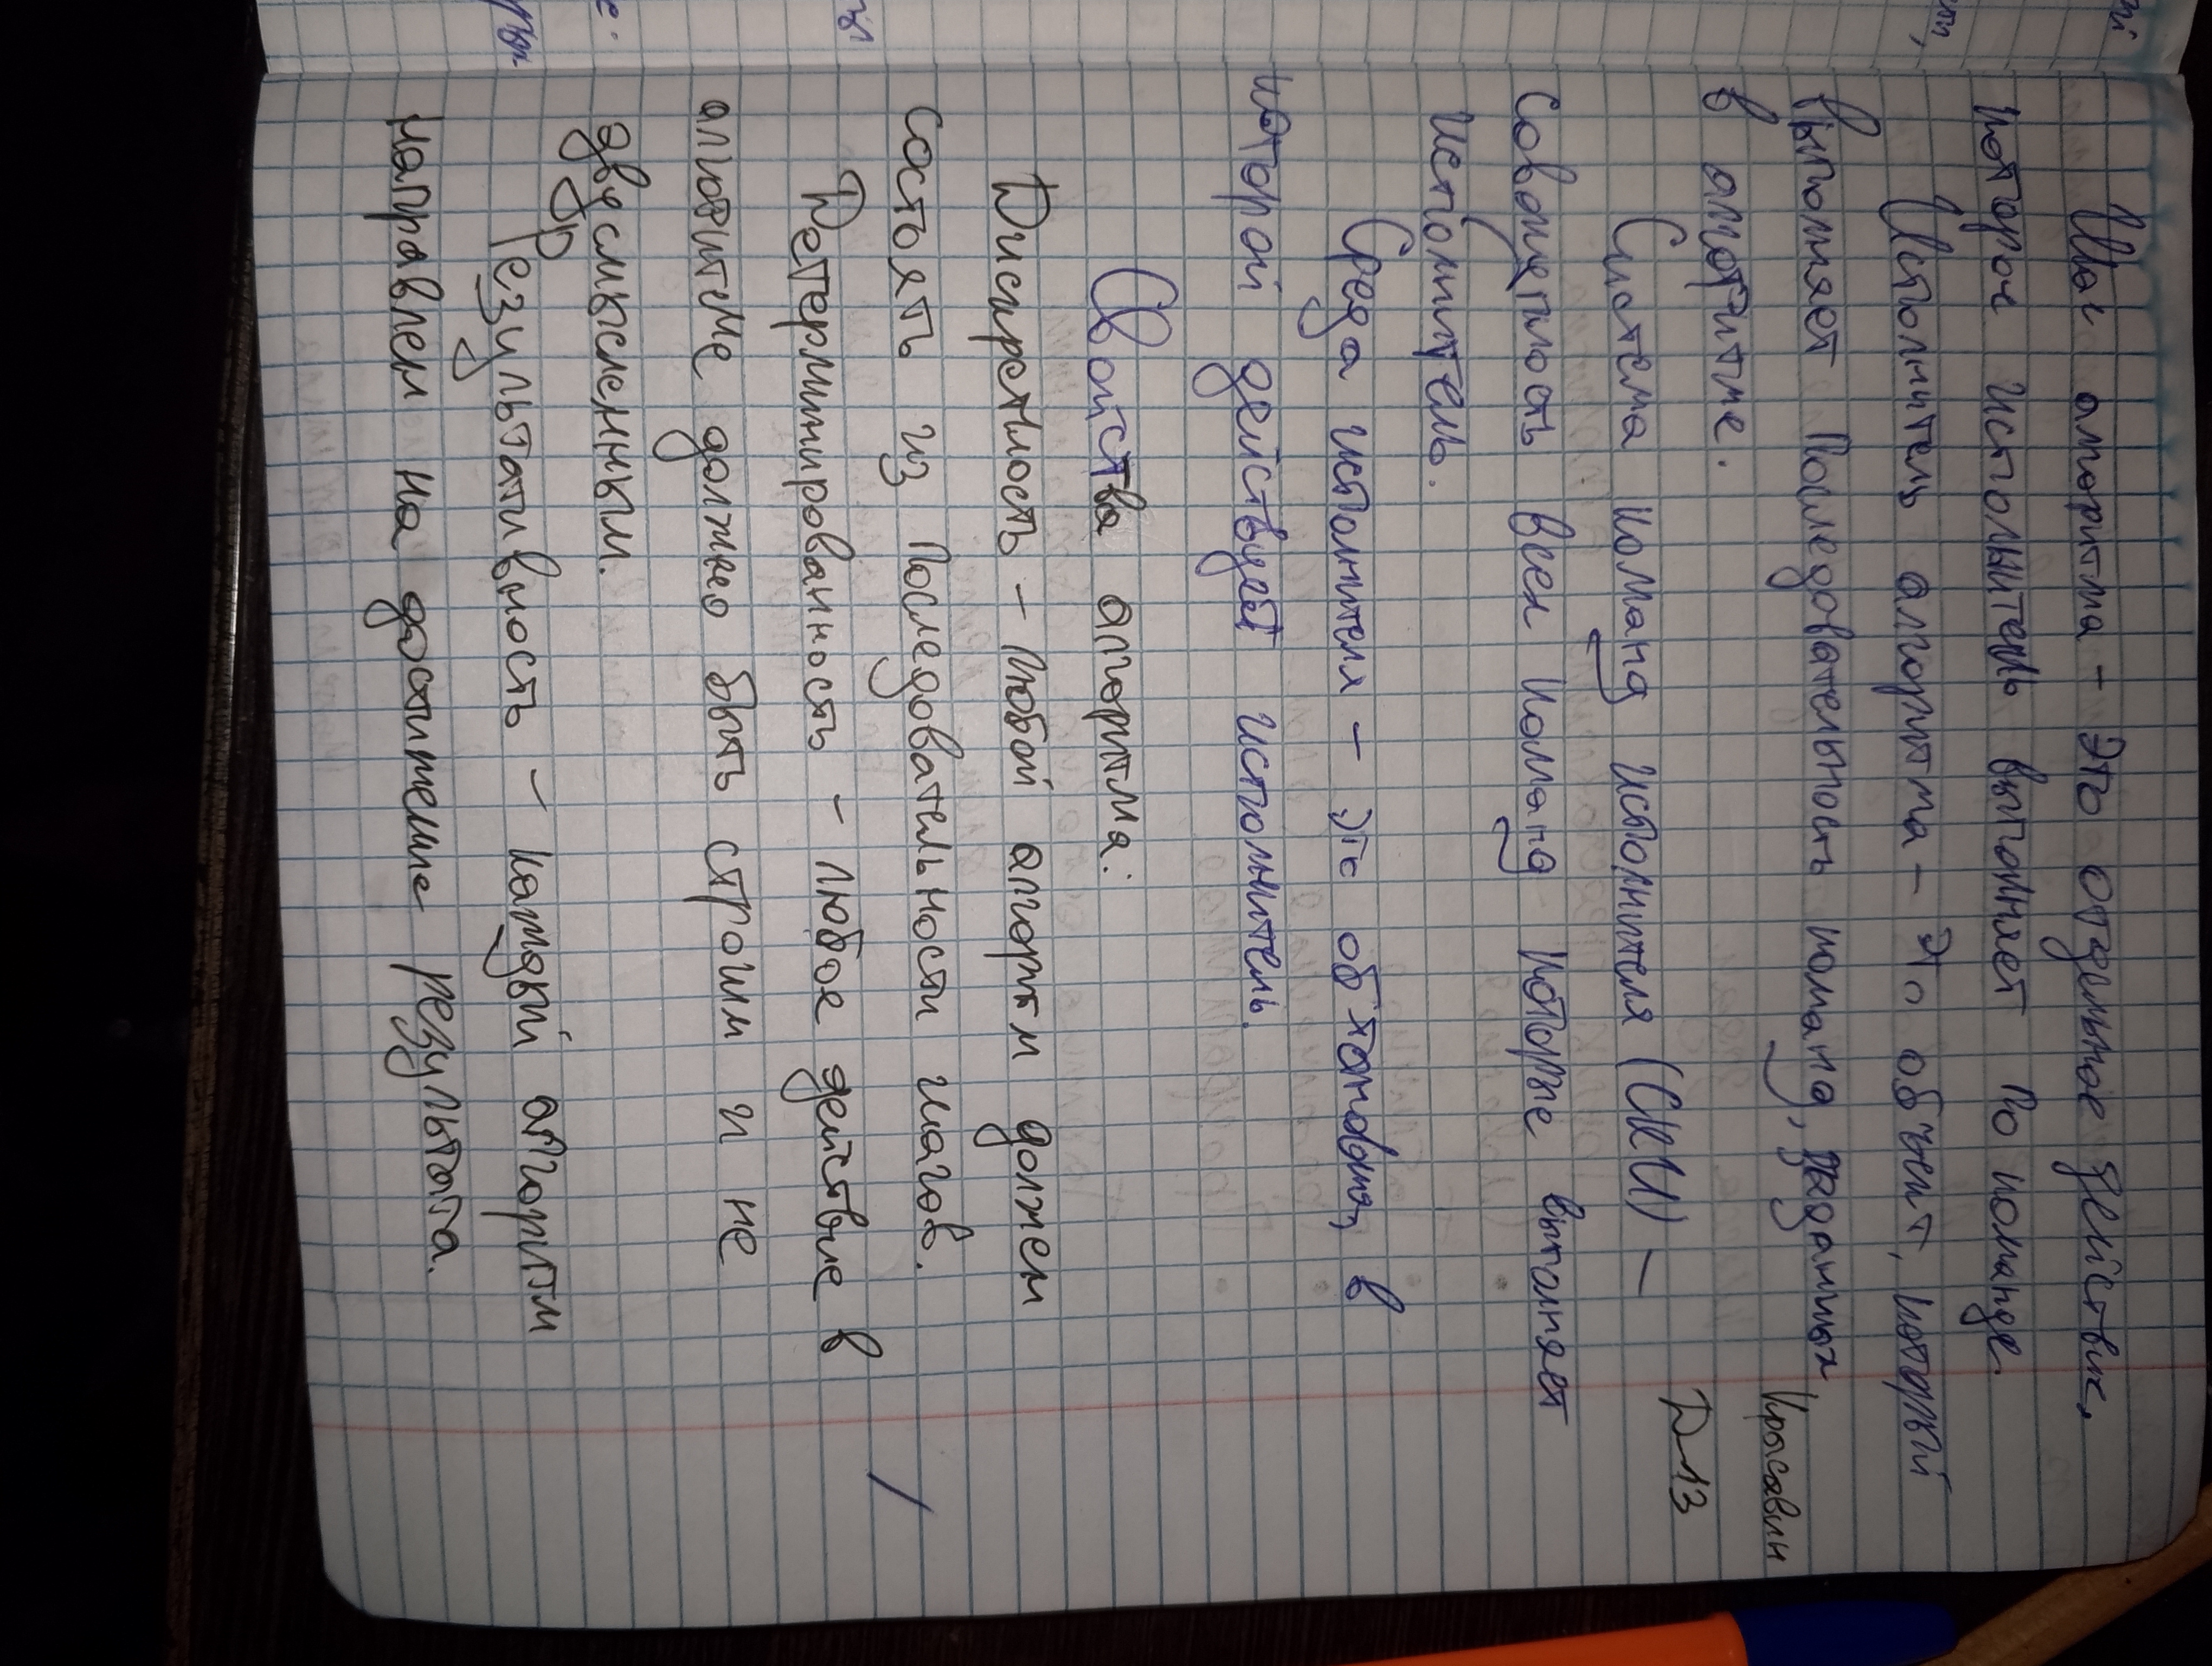 Шаг алгоритма – Это отдельное действие,
которое исполнитель выполняет по команде.
Исполнитель алгоритма – Это объект, который
выполняет последовательность команд, заданных
в алгоритме.
Система команд исполнителя (СКИ) –
Совокупность всех команд которые выполняет
исполнитель.
Среда исполнителя – это обстановка, в
которой действует исполнитель.
Свойства алгоритма:
Дискретность – Любой алгоритм должен
состоять из последовательности шагов.
Детерминированность – любое действие в
алгоритме должно быть строгим и не
двусмысленным.
Результативность – каждый алгоритм
направлен на достижение результата.
Красавин
ДЛЗ